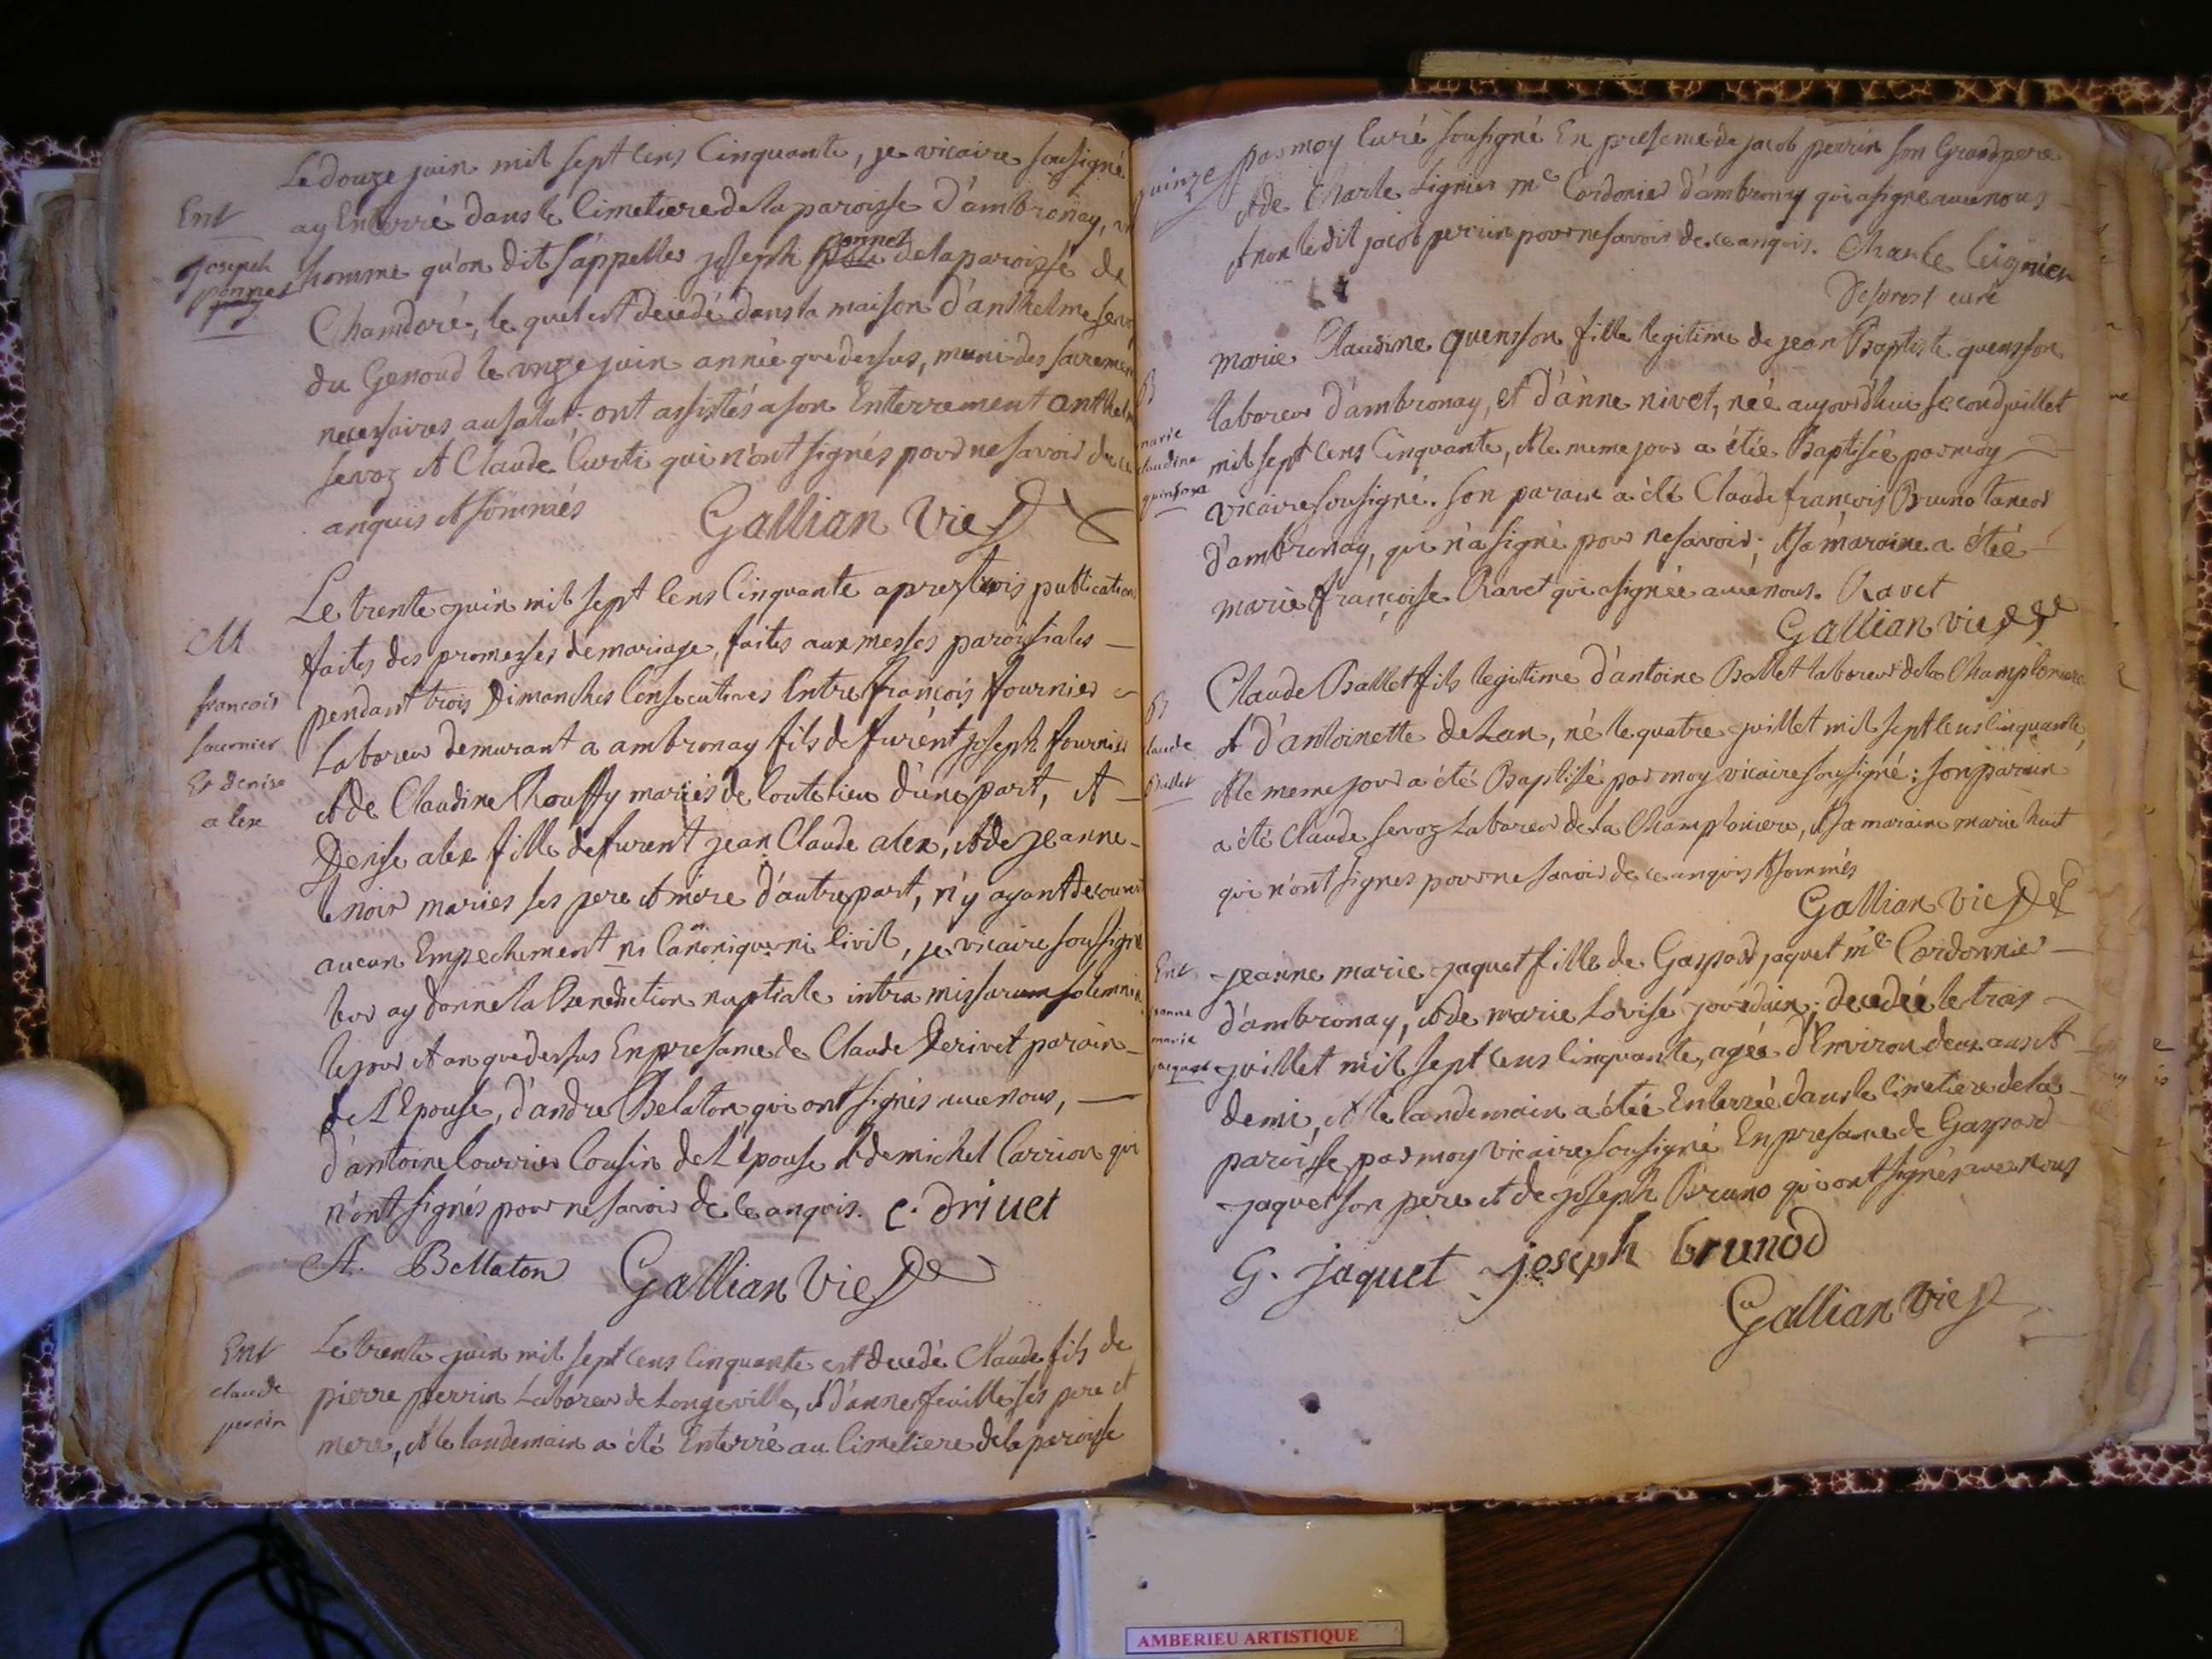 Le douze juin mil sept cens Cinquante, je vicaire sousigné
Ent
ay Enterré dans le Cimetiere de la paroisse d'ambronay, un
joseph
ponnet
homme qu'on dit s'appeller joseph ponnet de la paroisse de
Chamdoré, le quel est decedé dans la maison d'anthelme servoz
du Genoud le onze juin année que dessus, muni des sacremen
necessaires au salut; ont assistés a son Enterrement anthelm
servoz et Claude Curti qui n'ont signés pour ne savoir de ce
anquis et sommés
Gallian vic
Le trente juin mil sept cens Cinquante apres trois publication
M
faites des promesses de mariage, faites aux messes paroissiales
francois
fournier
Et denise
alex
pendant trois Dimanches Consecutives Entre françois fournier
Laboreur demurant a ambronay fils de furent joseph fournier
et de Claudine Chouffy mariés de Coutelieu d'une part, et
Denise alex fille defurent jean Claude alex, et de jeanne
lenoir maries ses pere et mere d'autre part, n'y ayant decouver
aucun Empechement ni Canonique ni Civil, je vicaire soussigné
leur ay donné la Benediction nuptiale intra missarum solemnia
le jour et an que dessus En presance de Claude Derivet parain
de L'Epouse, d'andre Belaton qui ont signés avec nous,
d'antoine Courrier Cousin de L'Epouse et de michel Carrion qui
n'ont signés pour ne savoir de ce anquis. C. Drivet
A. Bellaton Gallian vic
Ent
claude
perrin
Le trente juin mil sept cens Cinquante est decedé Claude fils de
pierre perrin Laboreur de Longeville, et d'anne feuille ses pere et
mere, et le landemain a été Enterré au Cimetiere de la paroisse
quinze
par moy Curé sousigné En presence de jacob perrin son Grandpere
et de Charle Lignier me Cordonier d'ambronay qui a signé avec nous
et non ledit jacob perrin pour ne savoir de ce anquis. Charle leignier
Deforest curé
marie Claudine quensson fille legitime de jean Baptiste quensson
B
marie
claudine
quinson
laboreur d'ambronay, et d'anne nivet, née aujourd'hui second juillet
mil sept cens Cinquante, et le meme jour a étée Baptisée par moy
vicaire sousigné. son parain a été Claude françois Bruno taneur
d'ambronay, qui n'a signé pour ne savoir; et sa maraine a étée
marie françoise Ravet qui a signée avec nous. Ravet
Gallian vic
B
claude
Ballet
Claude Ballet fils legitime d'antoine Ballet laboreur de la Championiere
et d'antoinette deLan, né le quatre juillet mil sept cens Cinquante,
et le meme jour a été Baptisé par moy vicaire sousigné; son parain
a été Claude servoz Laboreur de la Championiere, et sa maraine marie huit
qui n'ont signés pour ne savoir de ce anquis et sommés
Gallian vic
Ent
jeanne
marie
jacquet
jeanne marie jaquet fille de Gaspard jaquet me Cordonnier
d'ambronay, et de marie Lovise jourdain; decedée le trois
juillet mil sept cens Cinquante, agée d'Environ deux ans et
demi, et le landemain a étée Enterrée dans le Cimetiere de la
paroisse par moy vicaire sousigné En presance de Gaspard
jaquet son pere et de joseph Bruno qui ont signés avec nous
G. jaquet joseph brunod
Gallian vic
AMBERIEU ARTISTIQUE